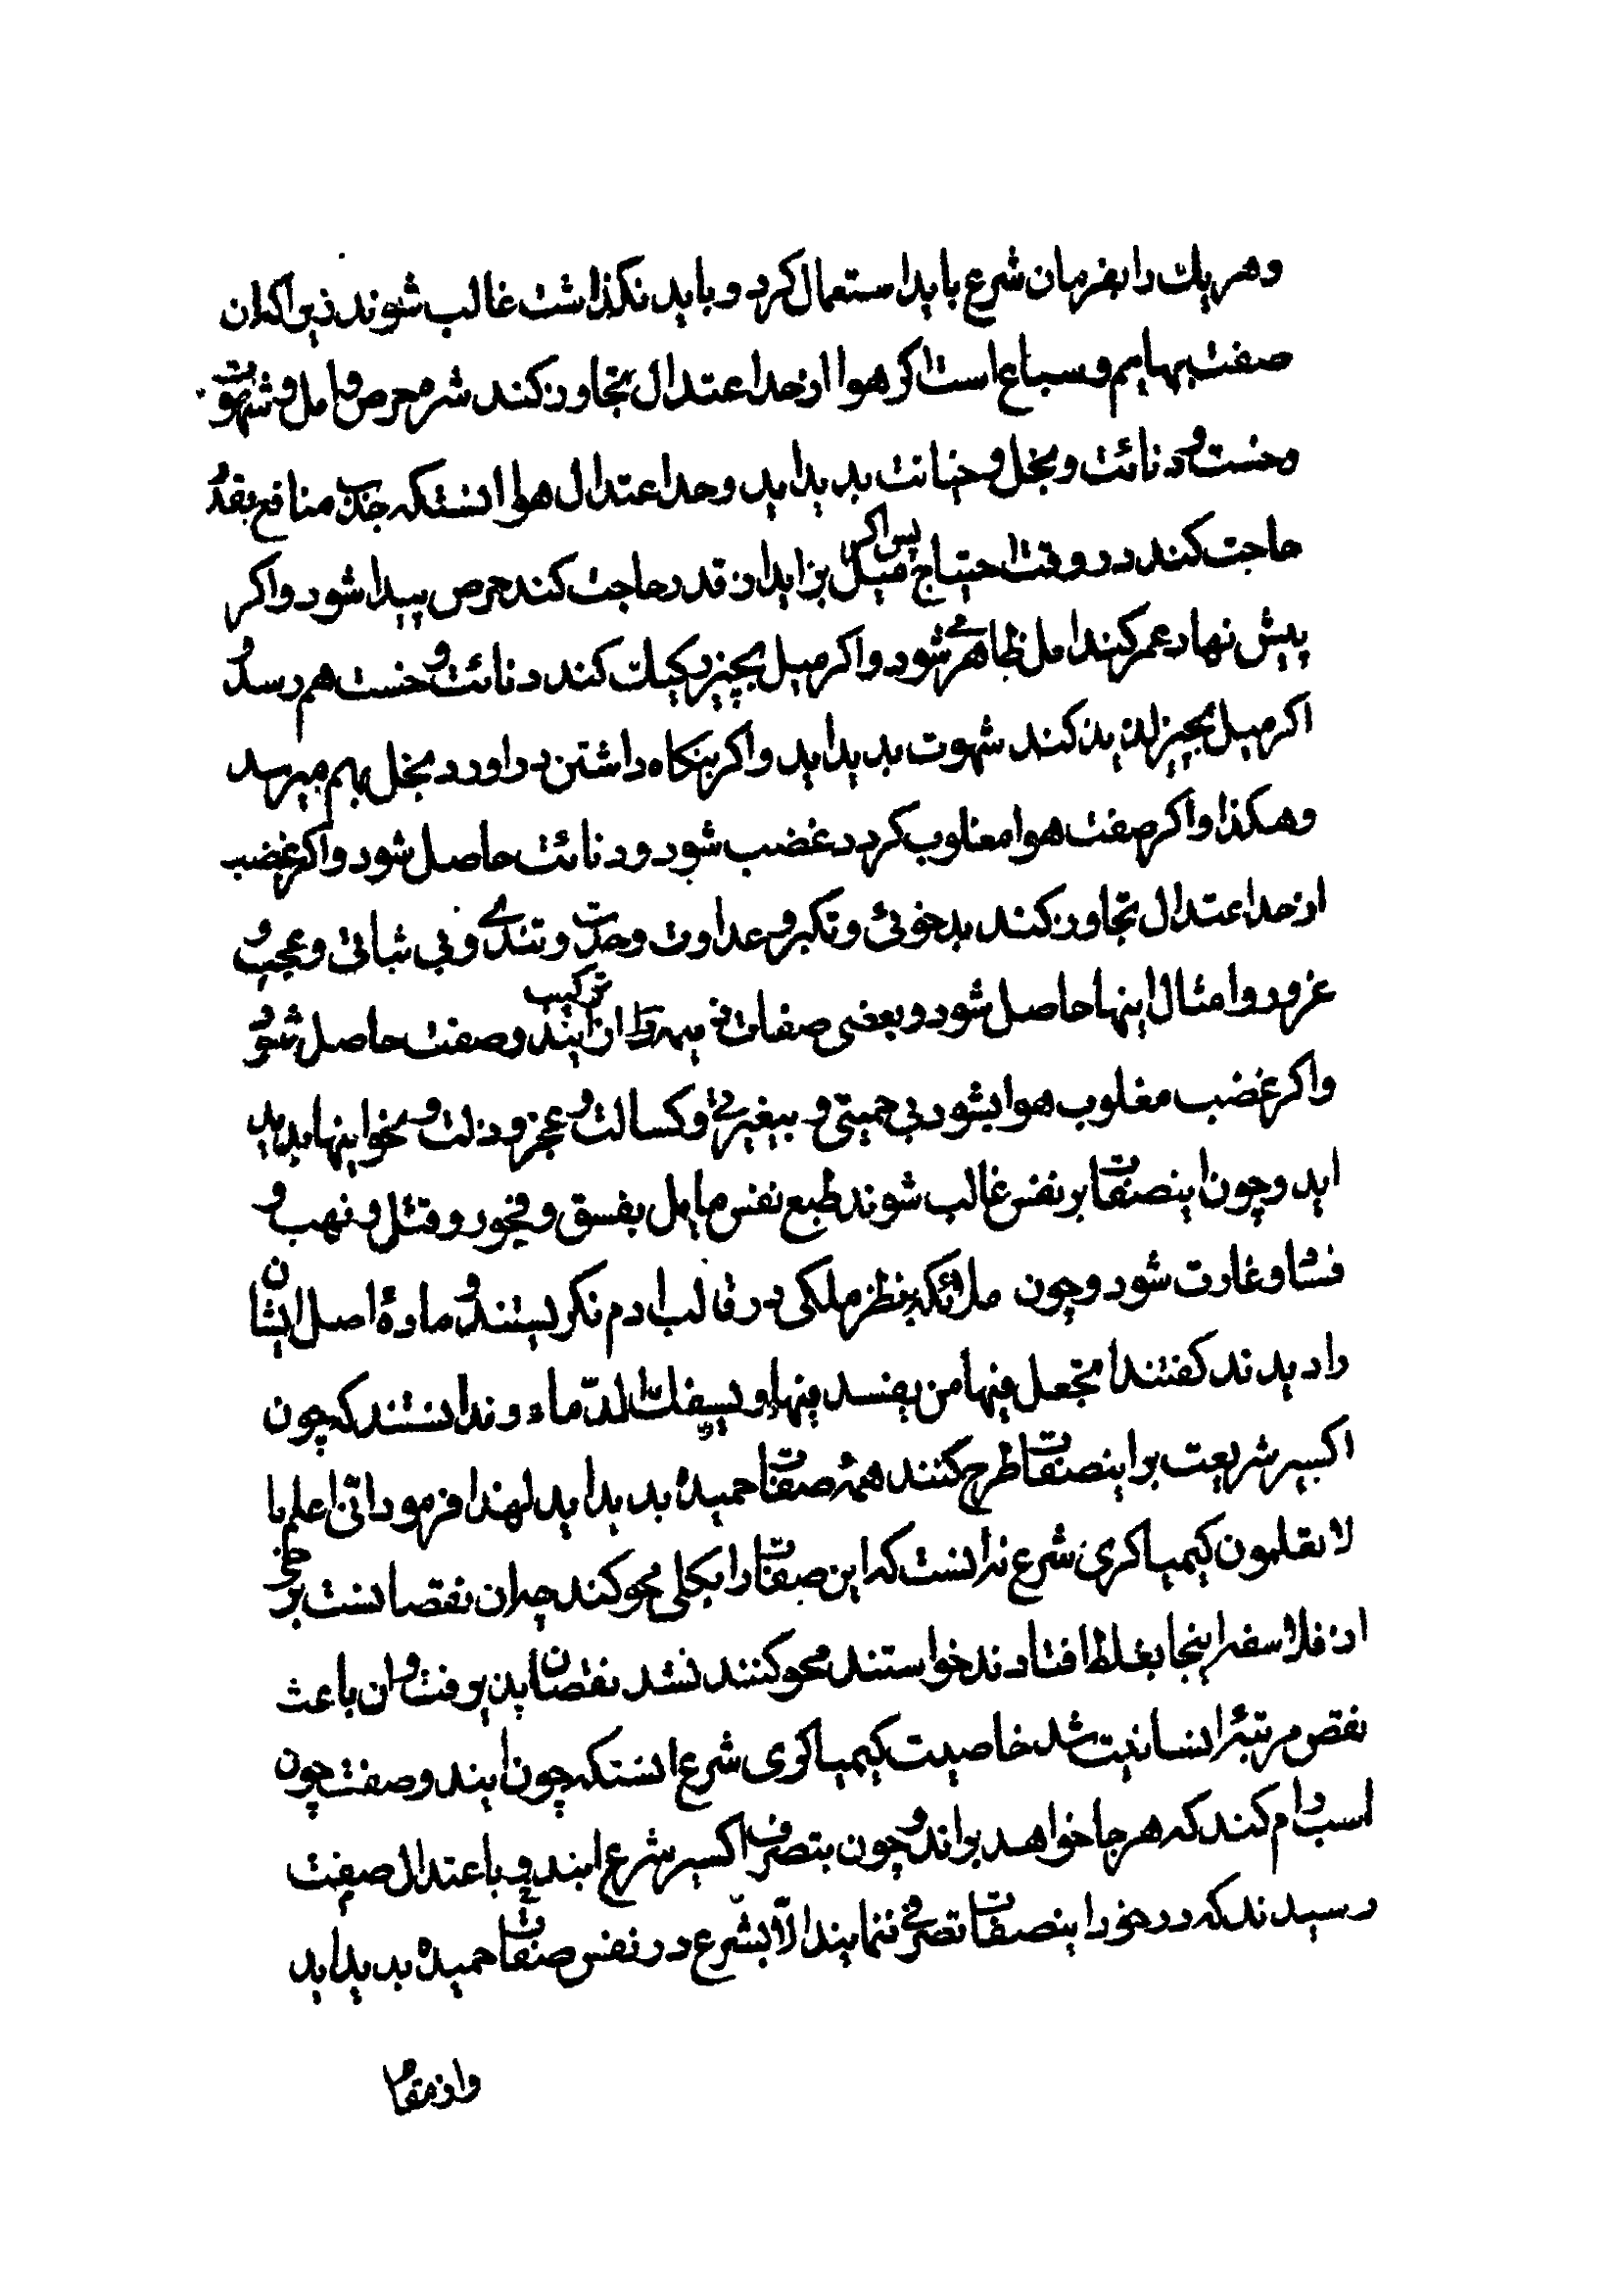 وهریك را بفرمان شرع باید استعمال کرد و باید نکذاشت غالب شوند زیرا که ان
صفت بهایم و سباع است اکر هوا از حد اعتدال تجاوز کند شره و حرص و امل و شهوت
و خست و دنائت و بخل و خیانت بدید اید و حد اعتدال هوا انستکه جذب منافع بقدر
حاجت کند در وقت احتیاج پس اکر میل بزاید از قدر حاجت کند حرص پیدا شود و اکر
پیش نهاد عمر کند امل ظاهر شود و اکر میل بچیز رکیك کند دنائت و خست هم رسد و
اکر میل بچیز لذیذ کند شهوت بدید اید و اکر بنکاه داشتن در اورد بخل بهم میرسد
وهکذا و اکر صفت هوا مغلوب کردد غضب شود و دنائت حاصل شود و اکر غضب
از حد اعتدال تجاوز کند بدخوئی و تکبر و عداوت و حدت و تندی و بی ثباتی و عجب و
غرور و امثال اینها حاصل شود و بعضی صفات ان ترکیب ایندو صفت حاصل شود
و اکر غضب مغلوب هوا بشود بی حمیتی و بیغیرتی و کسالت و عجز و ذلت و نحو اینها بدید
اید و چون اینصفات بر نفس غالب شوند طبع نفس مایل بفسق و فجور و قتل و نهب و
فساد و غارت شود و چون ملائکه بنظر ملکی در قالب ادم نکریستند و مادهٔ اصل ایشان
را دیدند کفتند اتجعل فیها من یفسد فیها و یسفك الدّماء و ندانستند که چون
اکسیر شریعت بر اینصفات طرح کنند همهٔ صفات حمیده بدید اید لهذا فرمود انّی اعلم ما
لا تعلمون کیمیاکری شرع نه انست که این صفات را بکلی محو کند چه ان نقصانست برخی
از فلاسفه اینجا بغلط افتادند خواستند محو کنند نشد نقصان پذیرفت و ان باعث
نقص مرتبهٔ انسانیت شد خاصیت کیمیاکری شرع انستکه چون ایندو صفت چون
اسب رام کند که هر جا خواهد براند و چون بتصرف اکسیر شرع ایندو باعتدال صفت
رسیدند که در خود اینصفات تصرفی ننمایند الّا بشرع در نفس صفات حمیده بدید اید
و از مقام